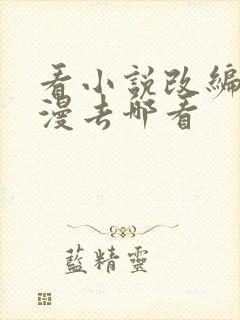 看小說改編
漫去哪看
藍精靈